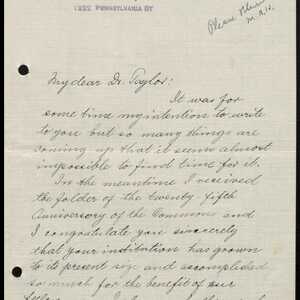 1222 PENNSYLVANIA ST
Please
M.R.H.
My dear Dr. Taylor:
It was for
some time my intention to write
to you but so many things are
coming up that it seems almost
impossible to find time for it.
In the meantime I received
the folder of the twenty-fifth
Anniversary of the Commons and
I congratulate you sincerely
that your institution has grown
to its present size and accomplished
so much for the benefit of our